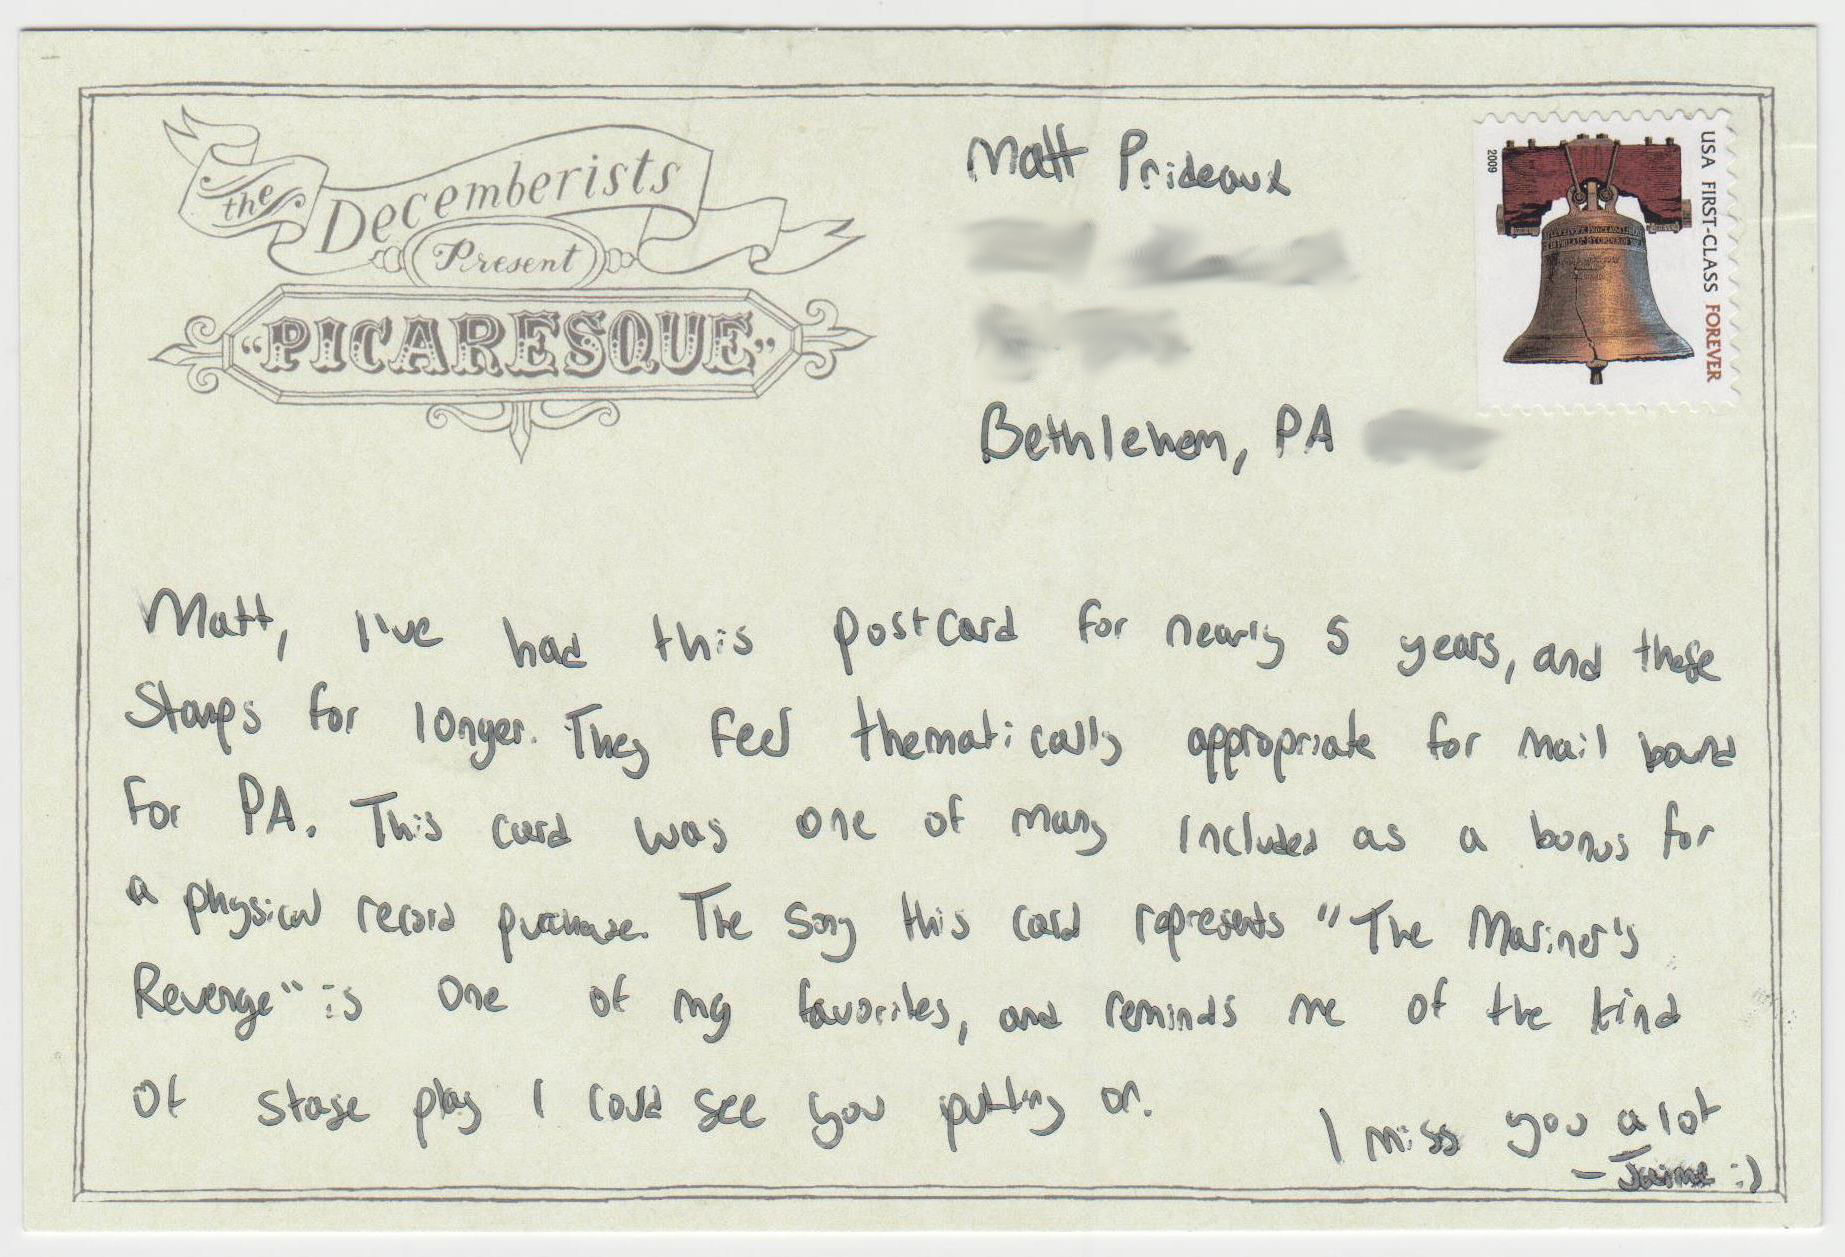 the Decemberists
Present
"PICARESQUE"
Matt Prideaux
Bethlehem, PA
2009
USA FIRST-CLASS FOREVER
Matt, I've had this postcard for nearly 5 years, and these
stamps for longer. They feel thematically appropriate for mail bound
for PA. This card was one of many included as a bonus for
a physical record purchase. The song this card represents "The Mariner's
Revenge" is one of my favorites, and reminds me of the kind
of stage play I could see you putting on.
I miss you a lot
- Jaime :)